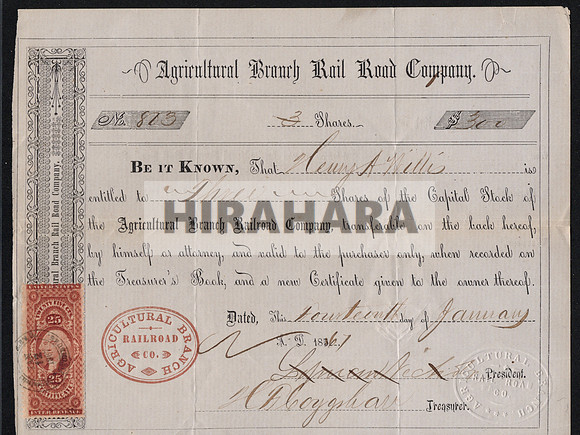 Agricultural Branch Rail Road Company.
No. 813
3 Shares.
$ 300
BE IT KNOWN, That Henry A Willis is
entitled to Three Shares of the Capital Stock of
the Agricultural Branch Railroad Company—transferable on the back hereof,
by himself or attorney, and valid to the purchaser only, when recorded on
the Treasurer's Book, and a new Certificate given to the owner thereof.
Dated, This fourteenth day of January
A. D. 1867
President.
Treasurer.
HIRAHARA
Branch Rail Road Company.
25
25
INTER REVENUE
AGRICULTURAL BRANCH
RAILROAD
CO.
AGRICULTURAL BRANCH
RAILROAD
CO